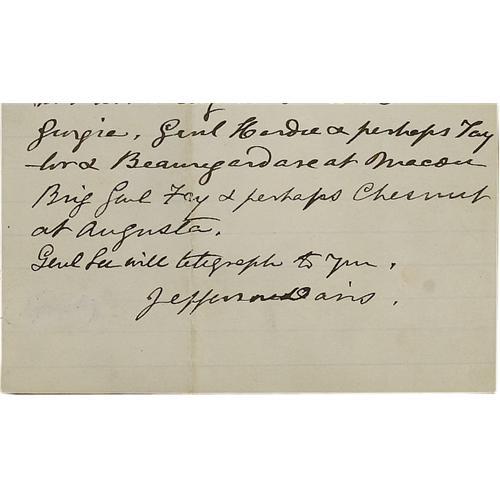 Georgia. Genl Hardee & perhaps Tay
lor & Beauregard are at Macon
Brig Genl Fry & perhaps Chesnut
at Augusta.
Genl Lee will telegraph to you.
Jefferson Davis.